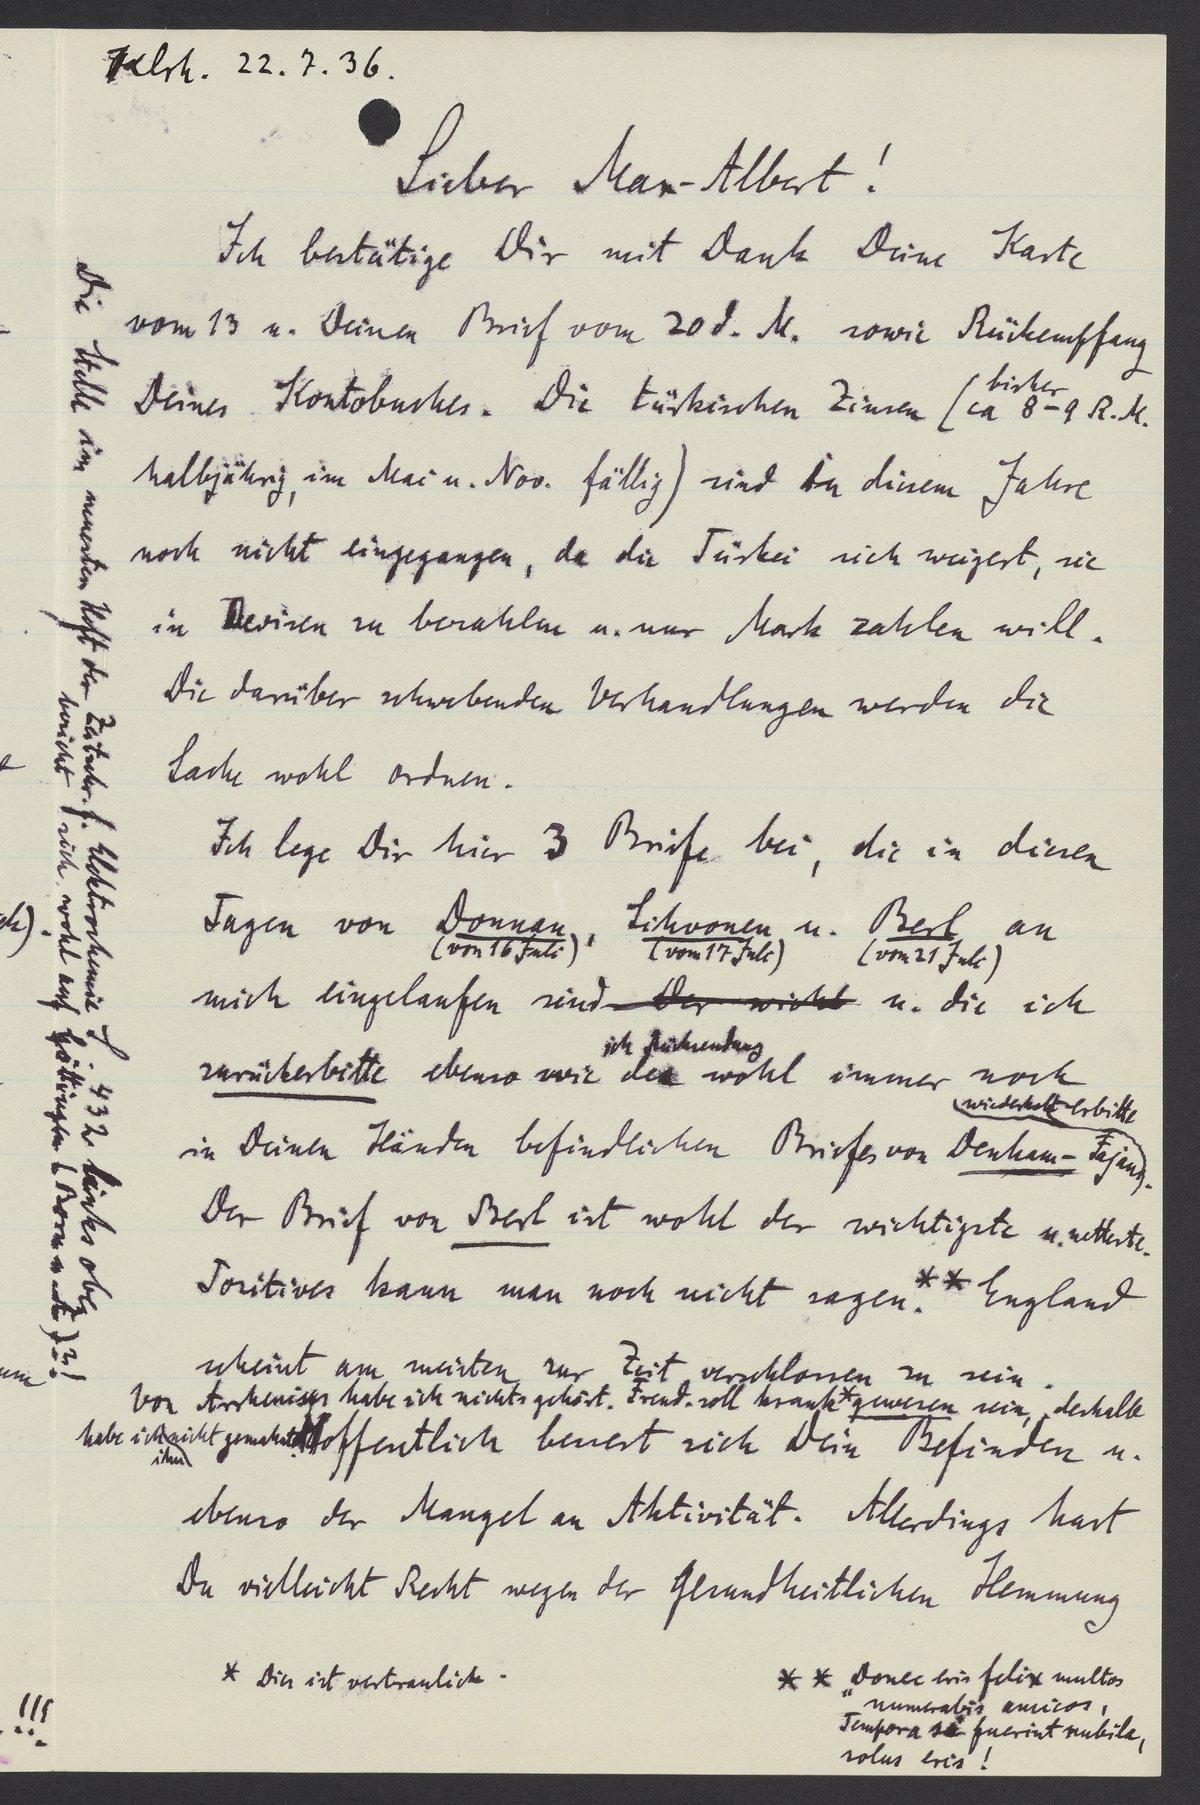 Klrh. 22.7.36.
Lieber Max-Albert!
Ich bestätige Dir mit Dank Deine Karte
vom 13 u. Deinen Brief vom 20 d. M. sowie Rückempfang
Deines Kontobuches. Die türkischen Zinsen (bisher ca 8-9 R.M.
halbjährig, im Mai u. Nov. fällig) sind in diesem Jahre
noch nicht eingegangen, da die Türkei sich weigert, sie
in Devisen zu bezahlen u. nur Mark zahlen will.
Die darüber schwebenden Verhandlungen werden die
Sache wohl ordnen.
Ich lege Dir hier 3 Briefe bei, die in diesen
Tagen von Donnan, Sihvonen u. Berl an
(von 16 Juli) (vom 17 Juli) (vom 21 Juli)
mich eingelaufen sind Der wicht u. die ich
ich Rücksendung
zurückerbitte ebenso wie der wohl immer noch
wiederholt erbitte
in Deinen Händen befindlichen Briefes von Denham-Fajans.
Der Brief von Berl ist wohl der wichtigste u. netteste.
Positives kann man noch nicht sagen.** England
scheint am meisten zur Zeit verschlossen zu sein.
Von Arrhenius habe ich nichts gehört. Freud. soll krank* gewesen sein, deshalb
habe ich ihn nicht gemahnt. Hoffentlich bessert sich Dein Befinden u.
ebenso der Mangel an Aktivität. Allerdings hast
Du vielleicht Recht wegen der gesundheitlichen Hemmung
* Dies ist vertraulich.
** Donec eris felix multos
" numerabis amicos,
Tempora si fuerint nubila,
solus eris!
Die Stelle im neuesten Heft der Zeitschr. f. Elektrochemie S. 432 links oben
bezieht sich wohl auf Göttingen (Born u.
!!!